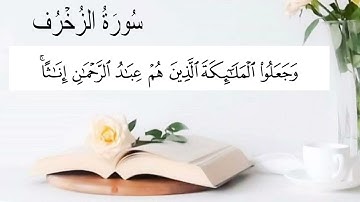 سُورَةُ الزُّخْرُف
وَجَعَلُوا۟ ٱلْمَلَـٰٓئِكَةَ ٱلَّذِينَ هُمْ عِبَـٰدُ ٱلرَّحْمَـٰنِ إِنَـٰثًا ۚ